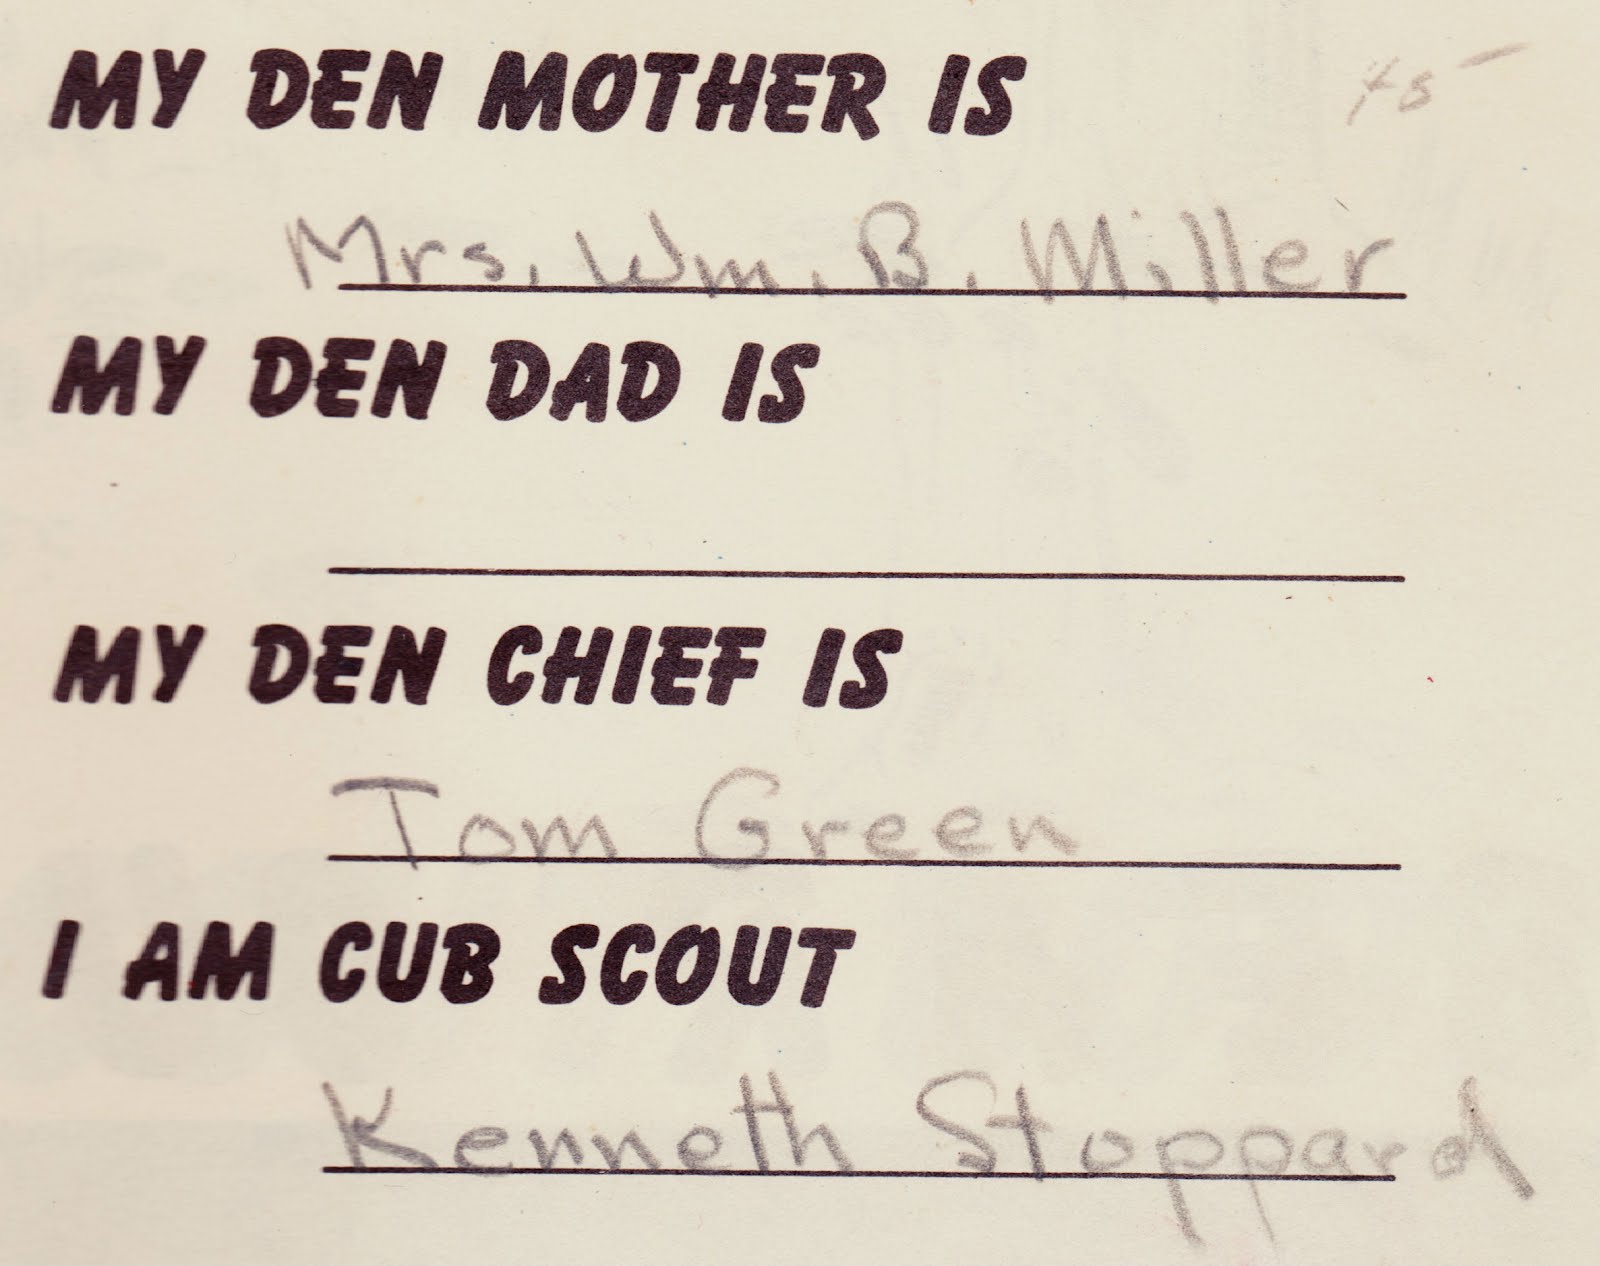 MY DEN MOTHER IS
Mrs. Wm. B. Miller
MY DEN DAD IS
MY DEN CHIEF IS
Tom Green
I AM CUB SCOUT
Kenneth Stoppard